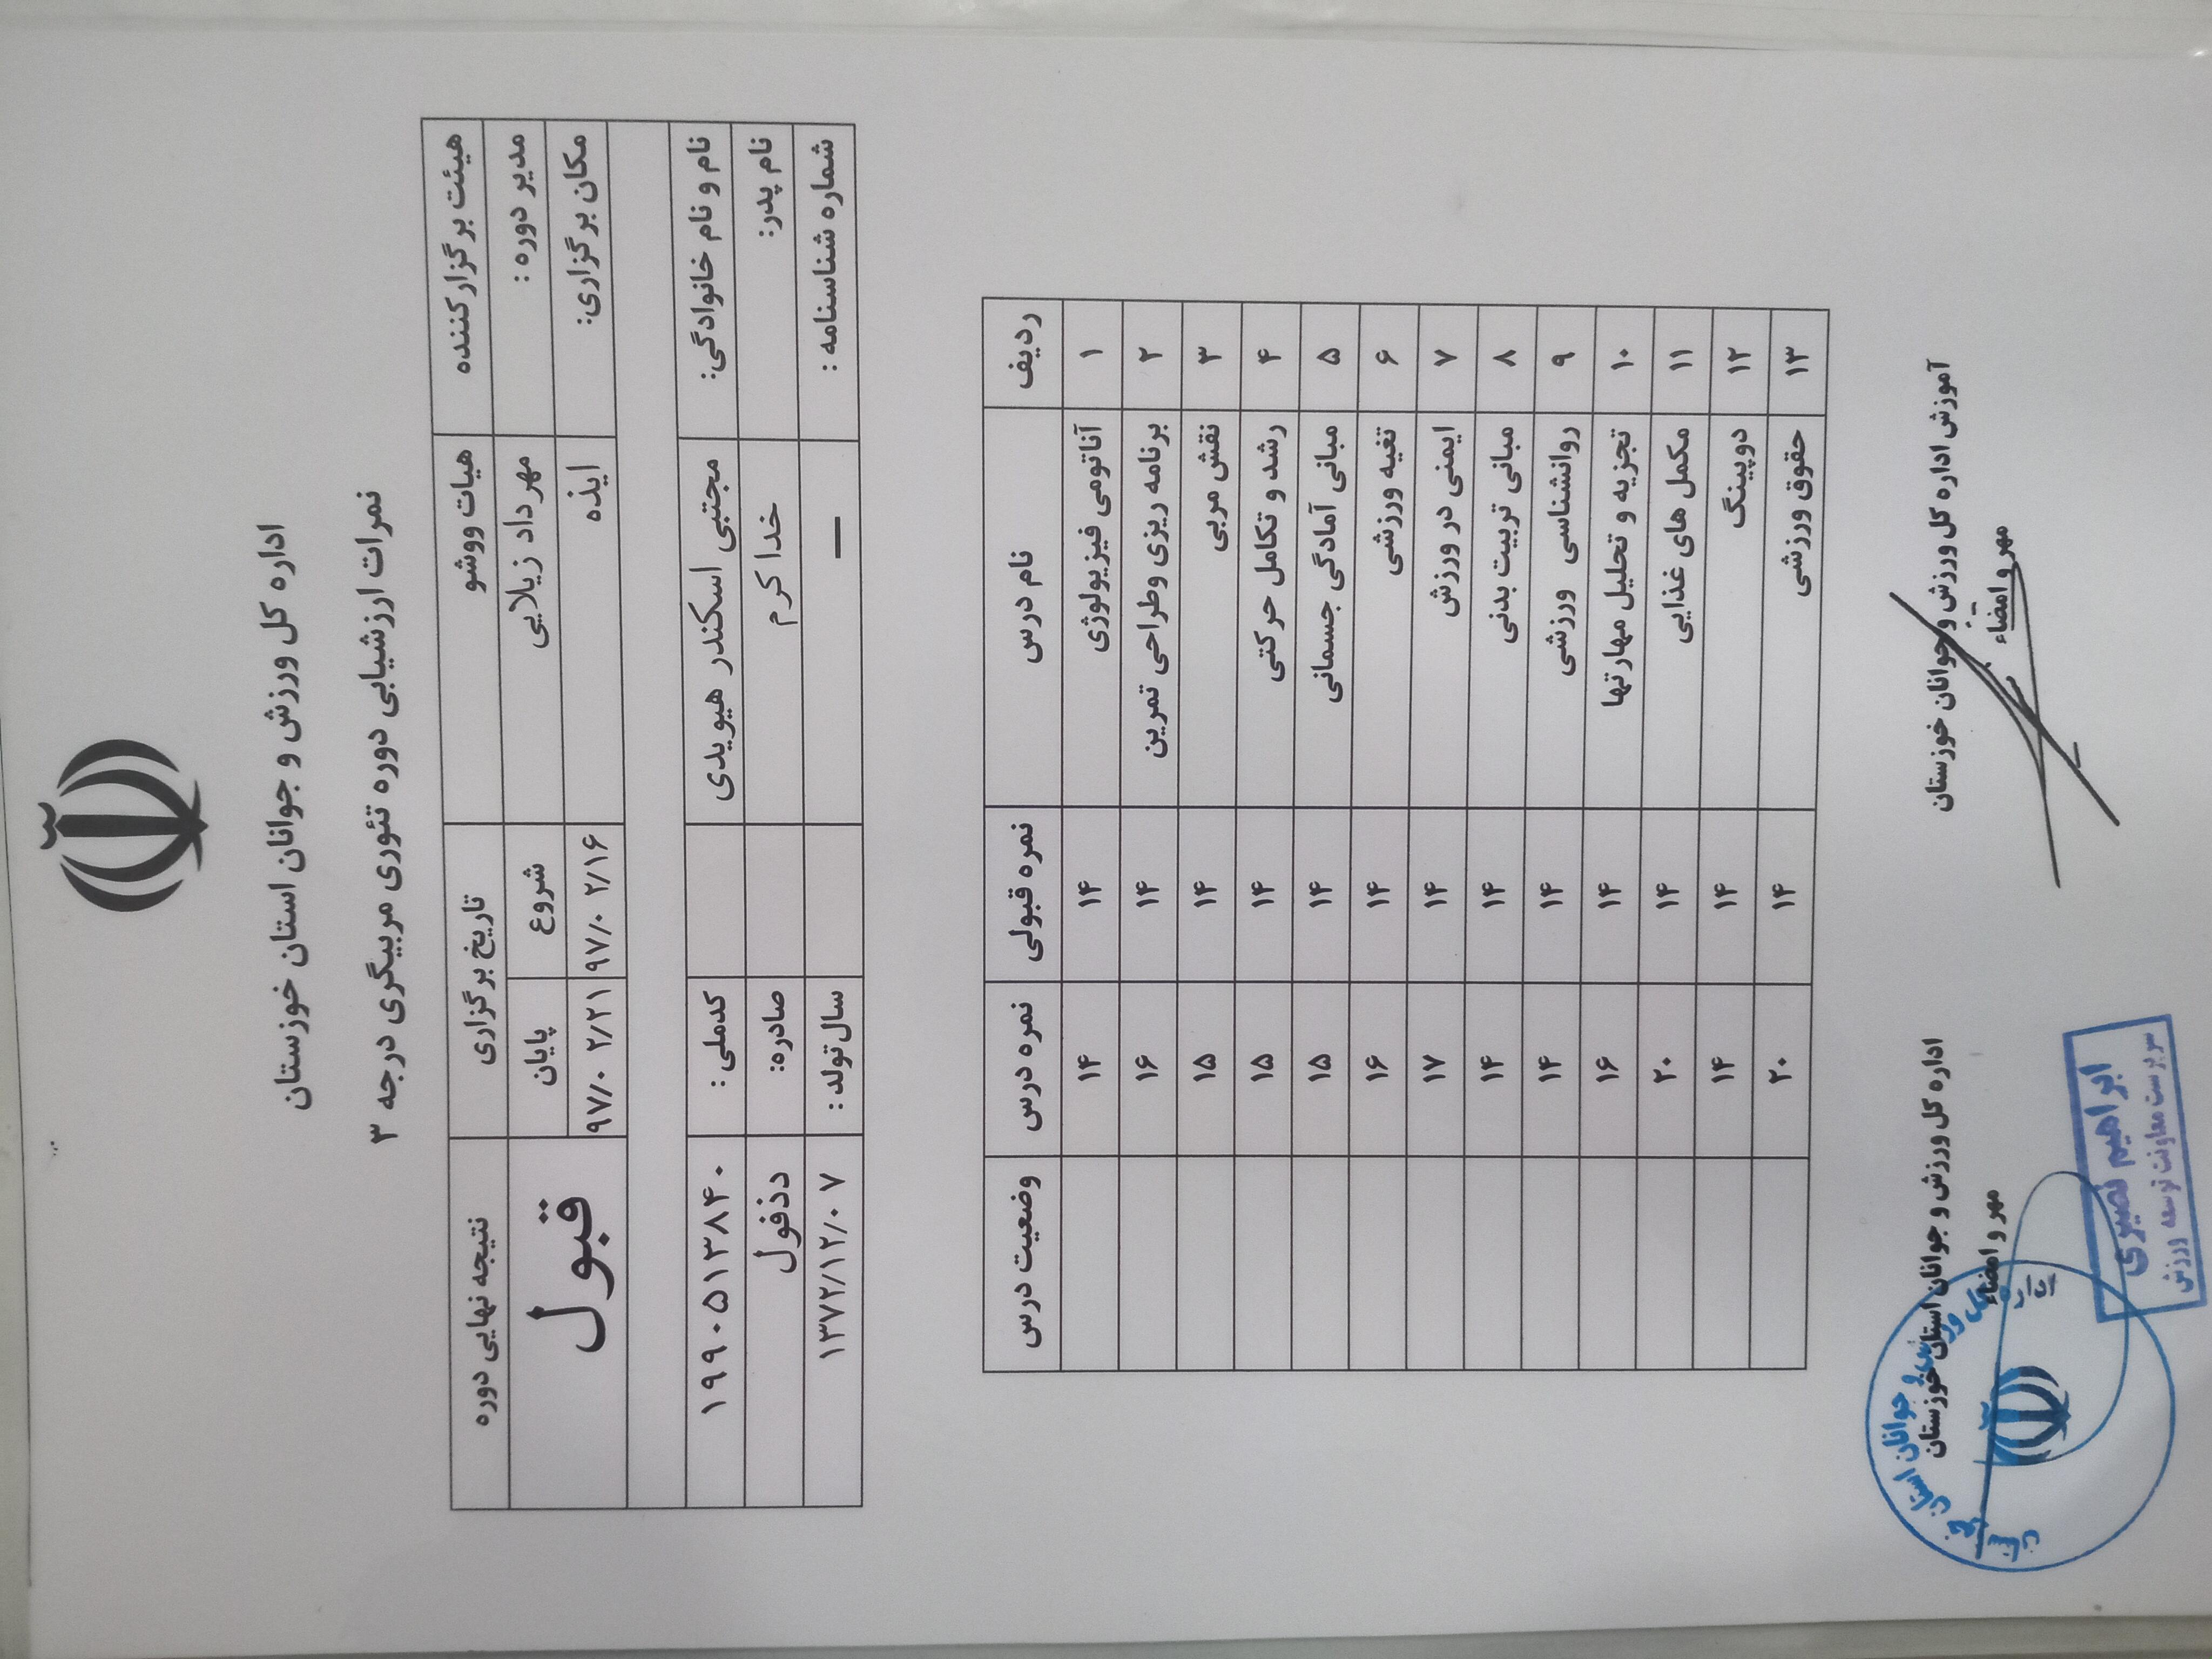 اداره کل ورزش و جوانان استان خوزستان
نمرات ارزشیابی دوره تئوری مربیگری درجه ۳
هیئت برگزارکننده هیات ووشو تاریخ برگزاری نتیجه نهایی دوره
مدیر دوره : مهرداد زیلایی شروع پایان قبول
مکان برگزاری: ایذه ۹۷/۰۲/۱۶ ۹۷/۰۲/۲۱
نام و نام خانوادگی: مجتبی اسکندر هیویدی کدملی : ۱۹۹۰۵۱۳۸۴۰
نام پدر: خداکرم صادره: دذفول
شماره شناسنامه : — سال تولد : ۱۳۷۲/۱۲/۰۷
ردیف نام درس نمره قبولی نمره درس وضعیت درس
۱ آناتومی فیزیولوژی ۱۴ ۱۴
۲ برنامه ریزی وطراحی تمرین ۱۴ ۱۶
۳ نقش مربی ۱۴ ۱۵
۴ رشد و تکامل حرکتی ۱۴ ۱۵
۵ مبانی آمادگی جسمانی ۱۴ ۱۵
۶ تغیه ورزشی ۱۴ ۱۶
۷ ایمنی در ورزش ۱۴ ۱۷
۸ مبانی تربیت بدنی ۱۴ ۱۴
۹ روانشناسی ورزشی ۱۴ ۱۴
۱۰ تجزیه و تحلیل مهارتها ۱۴ ۱۶
۱۱ مکمل های غذایی ۱۴ ۲۰
۱۲ دوپینگ ۱۴ ۱۴
۱۳ حقوق ورزشی ۱۴ ۲۰
آموزش اداره کل ورزش و جوانان خوزستان
مهر و امضاء
اداره کل ورزش و جوانان استان خوزستان
مهر و امضاء
ابراهیم نصیری
سرپرست معاونت توسعه ورزش